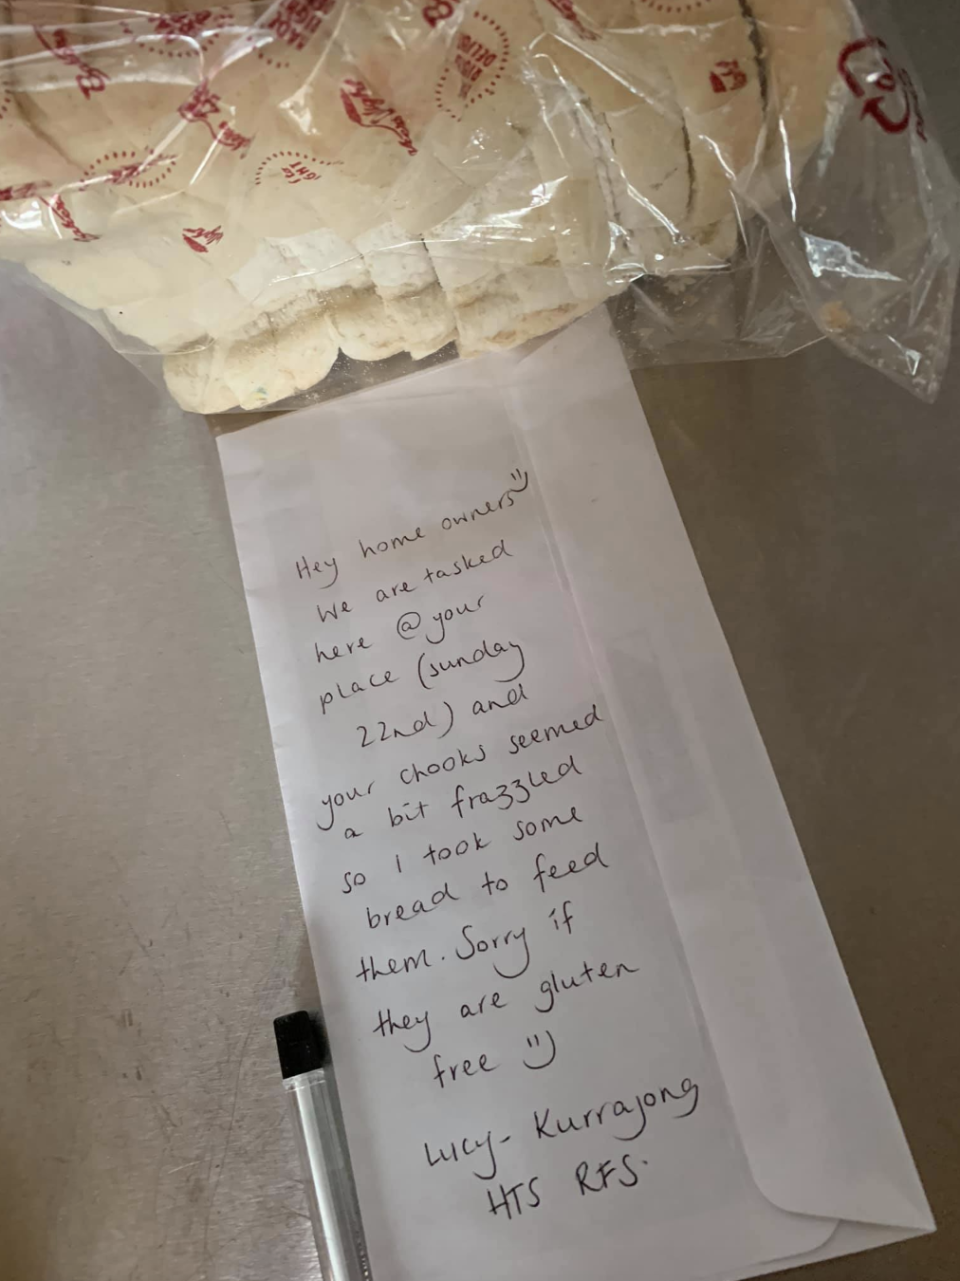 Hey home owners
We are tasked
here @ your
place (sunday
22nd) and
your chooks seemed
a bit frazzled
so I took some
bread to feed
them. Sorry if
they are gluten
free
Lucy - Kurrajong
HTS RFS.